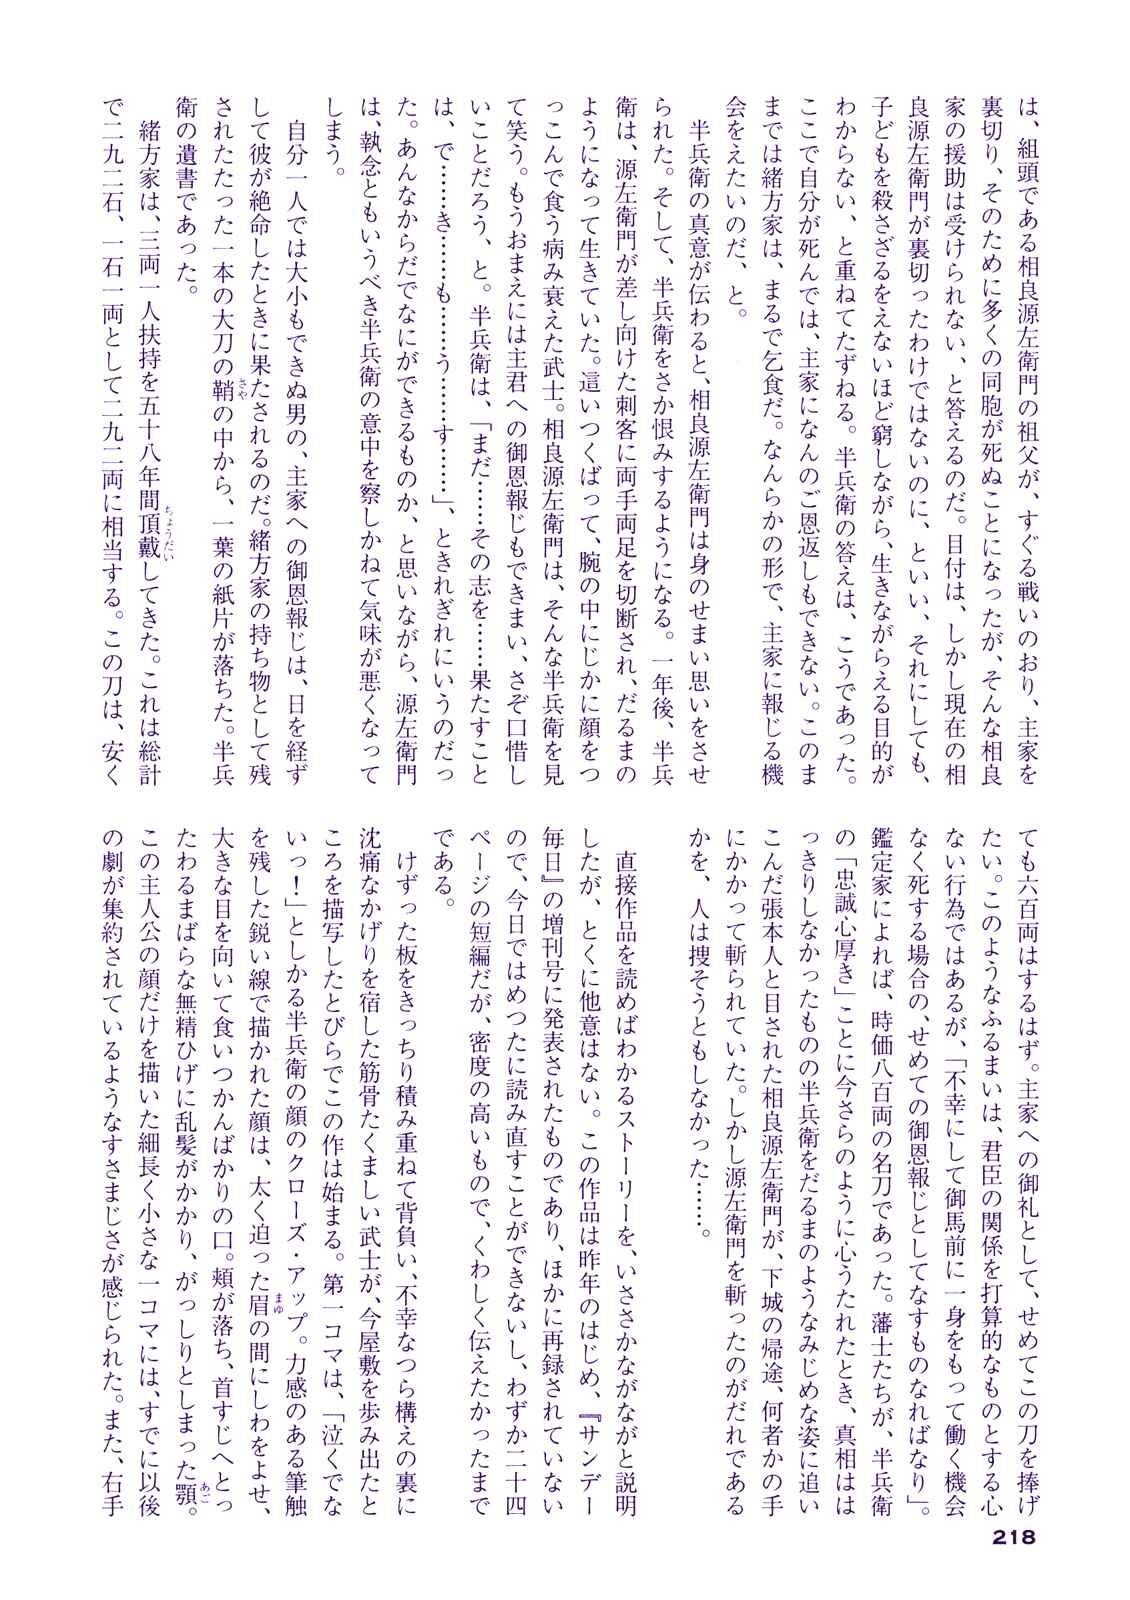 は、組頭である相良源左衛門の祖父が、すぐる戦いのおり、主家を
裏切り、そのために多くの同胞が死ぬことになったが、そんな相良
家の援助は受けられない、と答えるのだ。目付は、しかし現在の相
良源左衛門が裏切ったわけではないのに、といい、それにしても、
子どもを殺さざるをえないほど窮しながら、生きながらえる目的が
わからない、と重ねてたずねる。半兵衛の答えは、こうであった。
ここで自分が死んでは、主家になんのご恩返しもできない。このま
までは緒方家は、まるで乞食だ。なんらかの形で、主家に報じる機
会をえたいのだ、と。
半兵衛の真意が伝わると、相良源左衛門は身のせまい思いをさせ
られた。そして、半兵衛をさか恨みするようになる。一年後、半兵
衛は、源左衛門が差し向けた刺客に両手両足を切断され、だるまの
ようになって生きていた。這いつくばって、腕の中にじかに顔をつ
っこんで食う病み衰えた武士。相良源左衛門は、そんな半兵衛を見
て笑う。もうおまえには主君への御恩報じもできまい、さぞ口惜し
いことだろう、と。半兵衛は、「まだ……その志を……果たすこと
は、で……き……も……う……す……」、ときれぎれにいうのだっ
た。あんなからだでなにができるものか、と思いながら、源左衛門
は、執念ともいうべき半兵衛の意中を察しかねて気味が悪くなって
しまう。
自分一人では大小もできぬ男の、主家への御恩報じは、日を経ず
して彼が絶命したときに果たされるのだ。緒方家の持ち物として残
されたたった一本の大刀の鞘さやの中から、一葉の紙片が落ちた。半兵
衛の遺書であった。
緒方家は、三両一人扶持を五十八年間頂戴ちょうだいしてきた。これは総計
で二九二石、一石一両として二九二両に相当する。この刀は、安く
ても六百両はするはず。主家への御礼として、せめてこの刀を捧げ
たい。このようなふるまいは、君臣の関係を打算的なものとする心
ない行為ではあるが、「不幸にして御馬前に一身をもって働く機会
なく死する場合の、せめての御恩報じとしてなすものなればなり」。
鑑定家によれば、時価八百両の名刀であった。藩士たちが、半兵衛
の「忠誠心厚き」ことに今さらのように心うたれたとき、真相はは
っきりしなかったものの半兵衛をだるまのようなみじめな姿に追い
こんだ張本人と目された相良源左衛門が、下城の帰途、何者かの手
にかかって斬られていた。しかし源左衛門を斬ったのがだれである
かを、人は捜そうともしなかった……。
直接作品を読めばわかるストーリーを、いささかながながと説明
したが、とくに他意はない。この作品は昨年のはじめ、『サンデー
毎日』の増刊号に発表されたものであり、ほかに再録されていない
ので、今日ではめつたに読み直すことができないし、わずか二十四
ページの短編だが、密度の高いもので、くわしく伝えたかったまで
である。
けずった板をきっちり積み重ねて背負い、不幸なつら構えの裏に
沈痛なかげりを宿した筋骨たくましい武士が、今屋敷を歩み出たと
ころを描写したとびらでこの作は始まる。第一コマは、「泣くでな
いっ！」としかる半兵衛の顔のクローズ・アップ。力感のある筆触
を残した鋭い線で描かれた顔は、太く迫った眉まゆの間にしわをよせ、
大きな目を向いて食いつかんばかりの口。頬が落ち、首すじへとっ
たわるまばらな無精ひげに乱髪がかかり、がっしりとしまった顎あご。
この主人公の顔だけを描いた細長く小さな一コマには、すでに以後
の劇が集約されているようなすさまじさが感じられた。また、右手
218